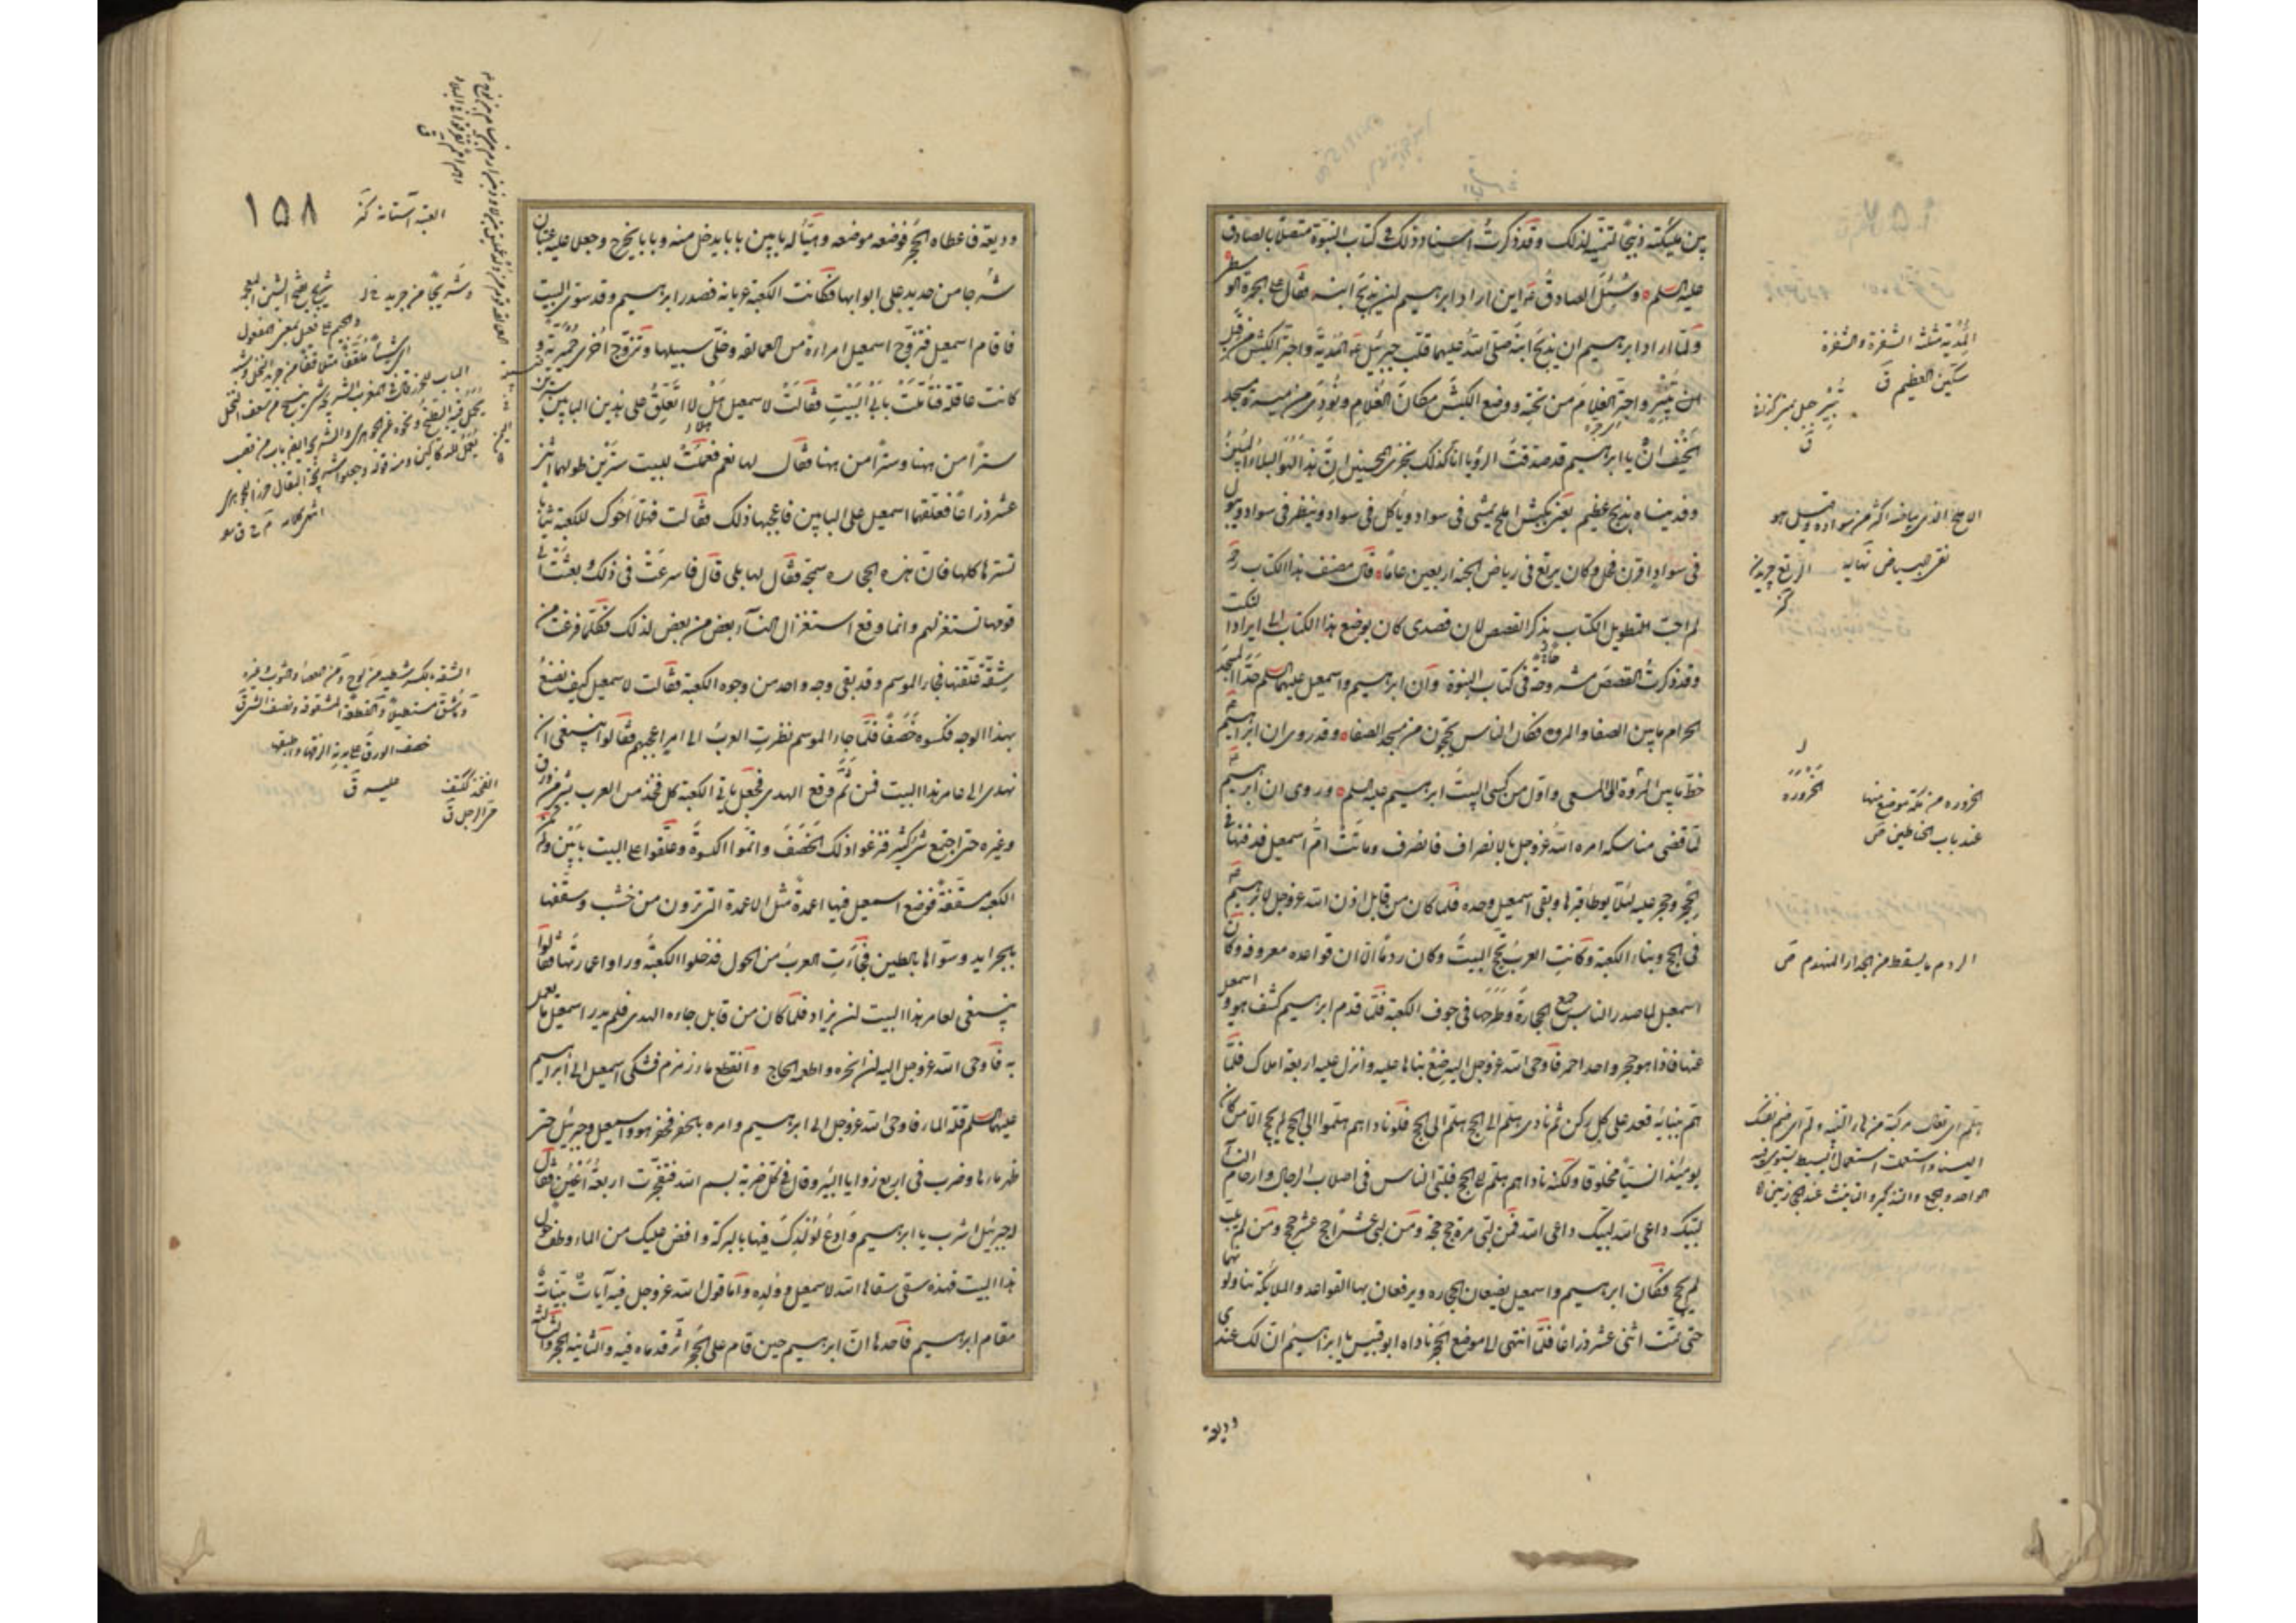 بين ملائكته ذبيحا لتمنيه لذلك وقد ذكرت اسناد ذلك في كتاب النبوة متصلا بالصادق
عليه السلم وسئل الصادق ع اين اراد ابرهيم ان يذبح ابنه فقال على الجمرة الوسطى
ولما اراد ابرهيم ان يذبح ابنه صلى الله عليهما قلب جبرئيل ع المدية واجتر الكبش من قبل
ثبير واجتر الغلام من تحته ووضع الكبش مكان الغلام ونودي من ميسرة مسجد
الخيف ان يا ابرهيم قد صدقت الرؤيا انا كذلك نجزى المحسنين ان هذا لهو البلاء المبين
وفديناه بذبح عظيم يعنى بكبش املح يمشى فى سواد وياكل فى سواد وينظر فى سواد ويبول
فى سواد اقرن فحل وكان يرتع فى رياض الجنة اربعين عاما قال مصنف هذا الكتاب ره
لم احب تطويل الكتاب بذكر القصص لان قصدى كان بوضع هذا الكتاب على ايراد النكت
وقد ذكرت القصص مشروحة فى كتاب النبوة وان ابرهيم واسمعيل عليهما السلم حدا المسجد
الحرام ما بين الصفا والمروة فكان الناس يحجون من مسجد الصفا وقد روى ان ابرهيم ع
خط ما بين الحزورة الى المسعى واول من كسى البيت ابرهيم عليه السلم وروى ان ابرهيم ع
لما قضى مناسكه امره الله عز وجل بالانصراف فانصرف وماتت ام اسمعيل فدفنها فى
الحجر وحجر عليه لئلا يوطا قبرها وبقى اسمعيل وحده فلما كان من قابل اذن الله عز وجل لابرهيم ع
فى الحج وبناء الكعبة وكانت العرب تحج البيت وكان ردما الا ان قواعده معروفة وكان
اسمعيل لما صدر الناس جمع الحجارة وطرحها فى جوف الكعبة فلما قدم ابرهيم كشف هو واسمعيل
عنها فاذا هو حجر واحد احمر فاوحى الله عز وجل اليه ضع بناها عليه وانزل عليه اربعة املاك فلما
اتم بنايه قعد على كل ركن ثم نادى هلم الى الحج هلم الى الحج فلو ناداهم هلموا الى الحج لم يحج الا من كان
يومئذ انسيا مخلوقا ولكنه ناداهم هلم الى الحج فلبى الناس فى اصلاب الرجال وارحام النساء
لبيك داعى الله لبيك داعى الله فمن لبى مرة حج حجة ومن لبى عشرا حج عشر حجج ومن لم يلب
لم يحج فكان ابرهيم واسمعيل يضعان الحجارة ويرفعان بها القواعد والملائكة تناولهما
حتى تمت اثنى عشر ذراعا فلما انتهى الى موضع الحجر ناداه ابو قبيس يا ابرهيم ان لك عندى
وديعة
المدية مثلثة الشفرة والشفرة
سكين العظيم ق
الاملح الذى بياضه اكثر من سواده وقيل هو
الحزورة من مكة موضع منها
عند باب الحناطين ص
الردم ما يسقط من الجدار المنهدم ص
١٥٨
وديعة فاعطاه الحجر فوضعه موضعه وهيأ له بابين بابا يدخل منه وبابا يخرج وجعلا عليه عتبا
شرجا من حديد على ابوابها فكانت الكعبة عريانة فصدر ابرهيم وقد سوى البيت
فاقام اسمعيل فتزوج اسمعيل امراءة من العمالقة وخلى سبيلها وتزوج اخرى حميرية و
كانت عاقلة فتاملت بابى البيت فقالت لاسمعيل هل لا اتعلق على هذين البابين سترين
سترا من ههنا وسترا من ههنا فقال لها نعم فعملت للبيت سترين طولهما اثنى
عشر ذراعا فعلقهما اسمعيل على البابين فاعجبها ذلك فقالت فهلا احوك للكعبة ثيابا
تسترها كلها فان هذه الحجارة سمجة فقال لها بلى قال فاسرعت فى ذلك وبعثت الى
قومها تستغزلهم وانما وقع استغزال النساء بعض من بعض لذلك فكلما فرغت من
شقة علقتها فجاء الموسم وقد بقى وجه واحد من وجوه الكعبة فقالت لاسمعيل كيف نصنع
بهذا الوجه فكسوه خصفا فلما جاء الموسم نظرت العرب الى امر اعجبهم فقالوا ينبغى ان
نهدى الى عامر هذا البيت فمن ثم وقع الهدى فجعل ياتى الكعبة كل فخذ من العرب بشئ من ورق
وغيره حتى اجتمع شئ كثير فنزعوا ذلك الخصف واتموا الكسوة وعلقوا على البيت بابين ولم تكن
الكعبة مسقفة فوضع اسمعيل فيها اعمدة مثل الاعمدة التى ترون من خشب وسقفها
بالجرايد وسواها بالطين فجاءت العرب من الحول فدخلوا الكعبة وراوا عمارتها فقالوا
ينبغى لعامر هذا البيت ان يزاد فلما كان من قابل جاءه الهدى فلم يدر اسمعيل ما يعمل
به فاوحى الله عز وجل اليه ان انحره واطعمه الحاج وانقطع ماء زمزم فشكى اسمعيل الى ابرهيم
عليهما السلم قلة الماء فاوحى الله عز وجل الى ابرهيم وامره بالحفر فحفر هو واسمعيل وجبرئيل حتى
ظهر ماءها وضرب فى اربع زوايا البئر وقال فى كل ضربة بسم الله فتفجرت اربعة اعين فقال
له جبرئيل اشرب يا ابرهيم وادع لولدك فيها بالبركة وافض عليك من الماء وطف حول
هذا البيت فهذه سقى سقاها الله لاسمعيل وولده واما قول الله عز وجل فيه آيات بينات
مقام ابرهيم فاحدها ان ابرهيم حين قام على الحجر اثر قدماه فيه والثانية الحجر والثالثة
العتبة آستانه كز